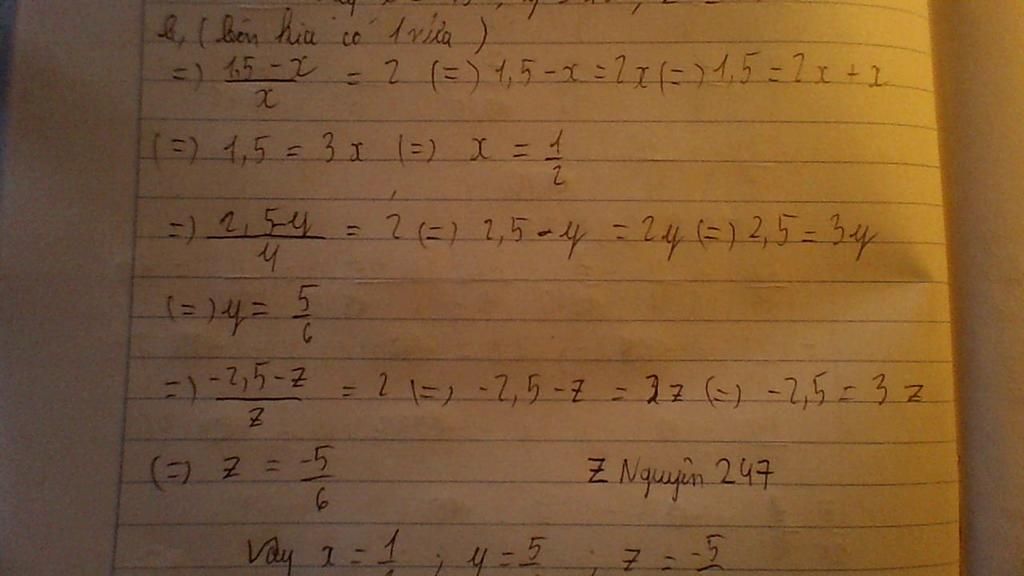 b, (bên kia có 1 nữa)
=) 1,5 - x / x = 2 (=) 1,5 - x = 2x (=) 1,5 = 2x + x
(=) 1,5 = 3x (=) x = 1/2
=) 2,5 - y / y = 2 (=) 2,5 - y = 2y (=) 2,5 = 3y
(=) y = 5/6
=) -2,5 - z / z = 2 (=) -2,5 - z = 2z (=) -2,5 = 3z
(=) z = -5/6 Z Nguyên 247
Vậy x = 1 ; y = 5 ; z = -5